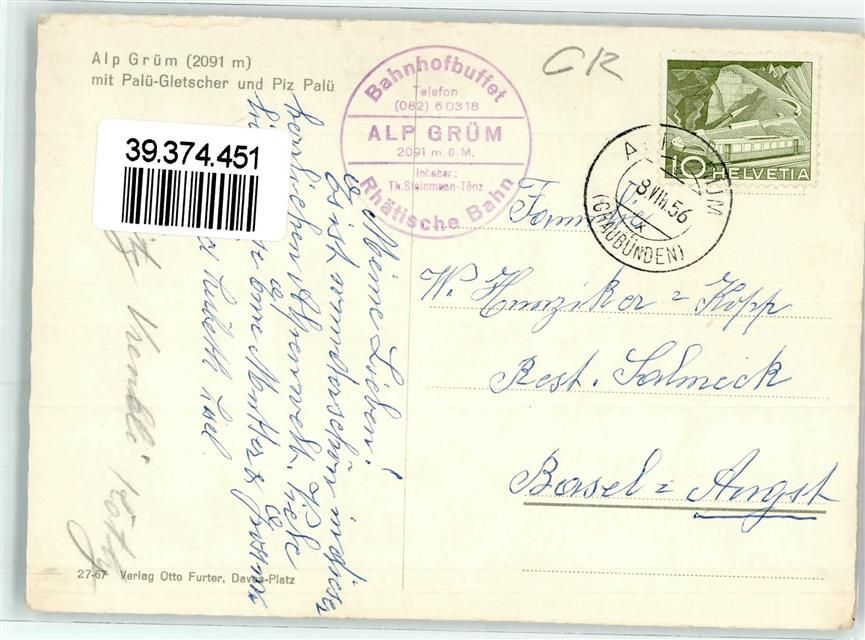 Alp Grüm (2091 m)
mit Palü-Gletscher und Piz Palü
39.374.451
Bahnhofbuffet
Telefon
(082) 6 03 18
ALP GRÜM
2091 m. ü. M.
Inhaber:
Th. Steinmann-Tönz
Rhätische Bahn
CR
10 HELVETIA
8.VIII.56
(GRAUBÜNDEN)
Familie
W. Hunziker = Kopp
Rest. Salmeck
Basel = Augst
Meine Lieben!
Es ist wunderschön in dieser
herrlichen Alpenwelt. Liebe
Mutter &
27-67 Verlag Otto Furter, Davos-Platz